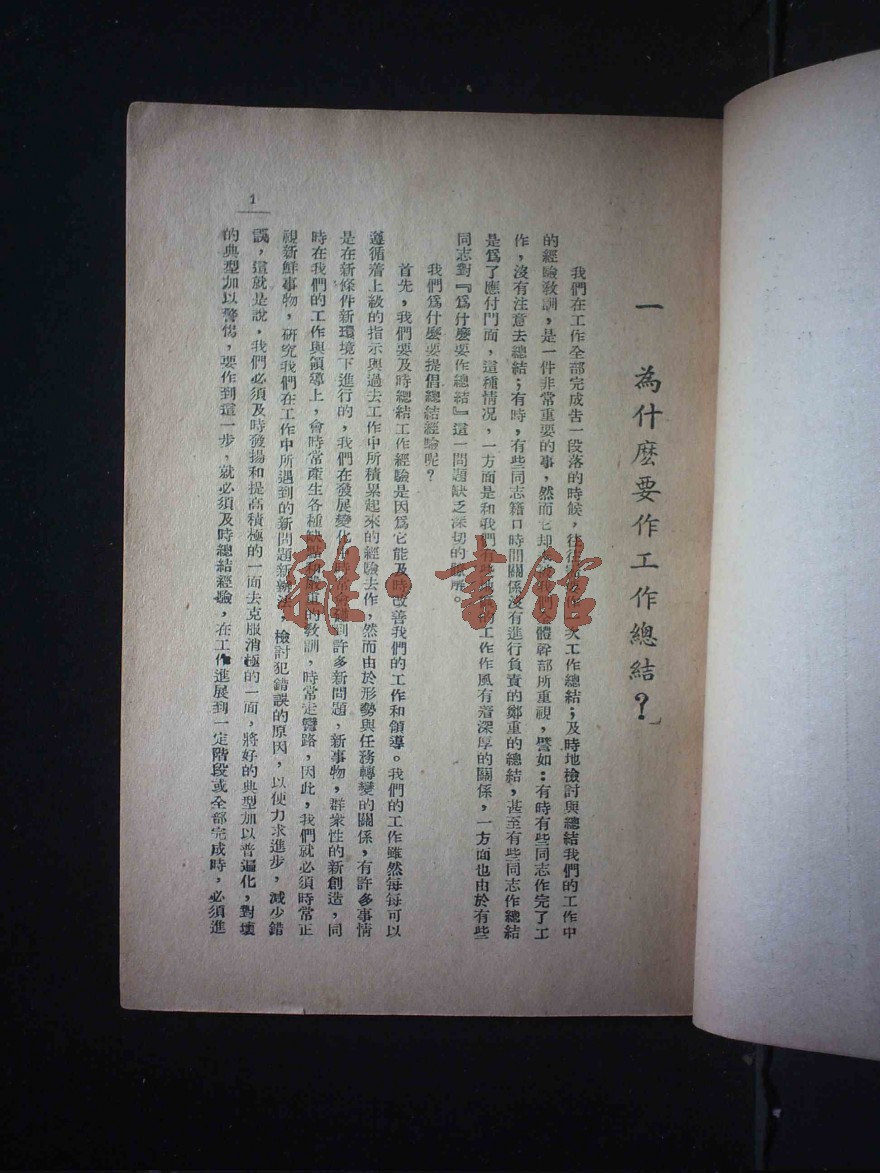 一 為什麽要作工作總結？
我們在工作全部完成告一段落的時候，往往次工作總結；及時地檢討與總結我們的工作中
的經驗敎訓，是一件非常重要的事，然而它却體幹部所重視，譬如：有時有些同志作完了工
作，沒有注意去總結；有時，有些同志籍口時間關係沒有進行負責的鄭重的總結，甚至有些同志作總結
是爲了應付門面，這種情况，一方面是和我們的工作作風有着深厚的關係，一方面也由於有些
同志對『爲什麽要作總結』這一問題缺乏深切的瞭解。
我們爲什麽要提倡總結經驗呢？
首先，我們要及時總結工作經驗是因爲它能及時改善我們的工作和領導。我們的工作雖然每每可以
遵循着上級的指示與過去工作中所積累起來的經驗去作，然而由於形勢與任務轉變的關係，有許多事情
是在新條件新環境下進行的，我們在發展變化中時常會碰到許多新問題，新事物，群衆性的新創造，同
時在我們的工作與領導上，會時常產生各種缺點和的敎訓，時常走彎路，因此，我們就必須時常正
視新鮮事物，研究我們在工作中所遇到的新問題新辦法，檢討犯錯誤的原因，以便力求進步，減少錯
誤，這就是說，我們必須及時發揚和提高積極的一面去克服消極的一面，將好的典型加以普遍化，對壞
的典型加以警惕，要作到這一步，就必須及時總結經驗，在工作進展到一定階段或全部完成時，必須進
1
雜·書館